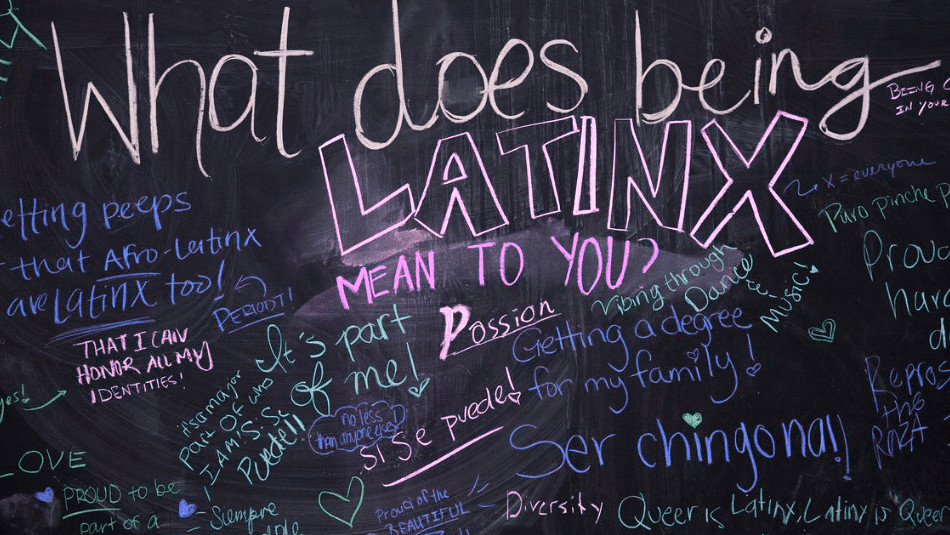 What does being
LATINX
MEAN TO YOU?
BEING
IN YOUR
X = everyone
etting peeps
that Afro-Latinx
are LATINX too!
PERIODT!
THAT I CAN
HONOR ALL MY
IDENTITIES!
yes!
It's part
of me!
it's a major
part of who
I AM
no less
than anyone else
Passion
Vibing through
Dance
Music!
Getting a degree
for my family!
Si Se puede!
Ser chingona!!
Puro pinche
Prou
har
d
Repres
the
RAZA
LOVE
PROUD to be
part of a
Siempre
Proud of the
BEAUTIFUL
Diversity
Queer is Latinx, Latinx is Queer